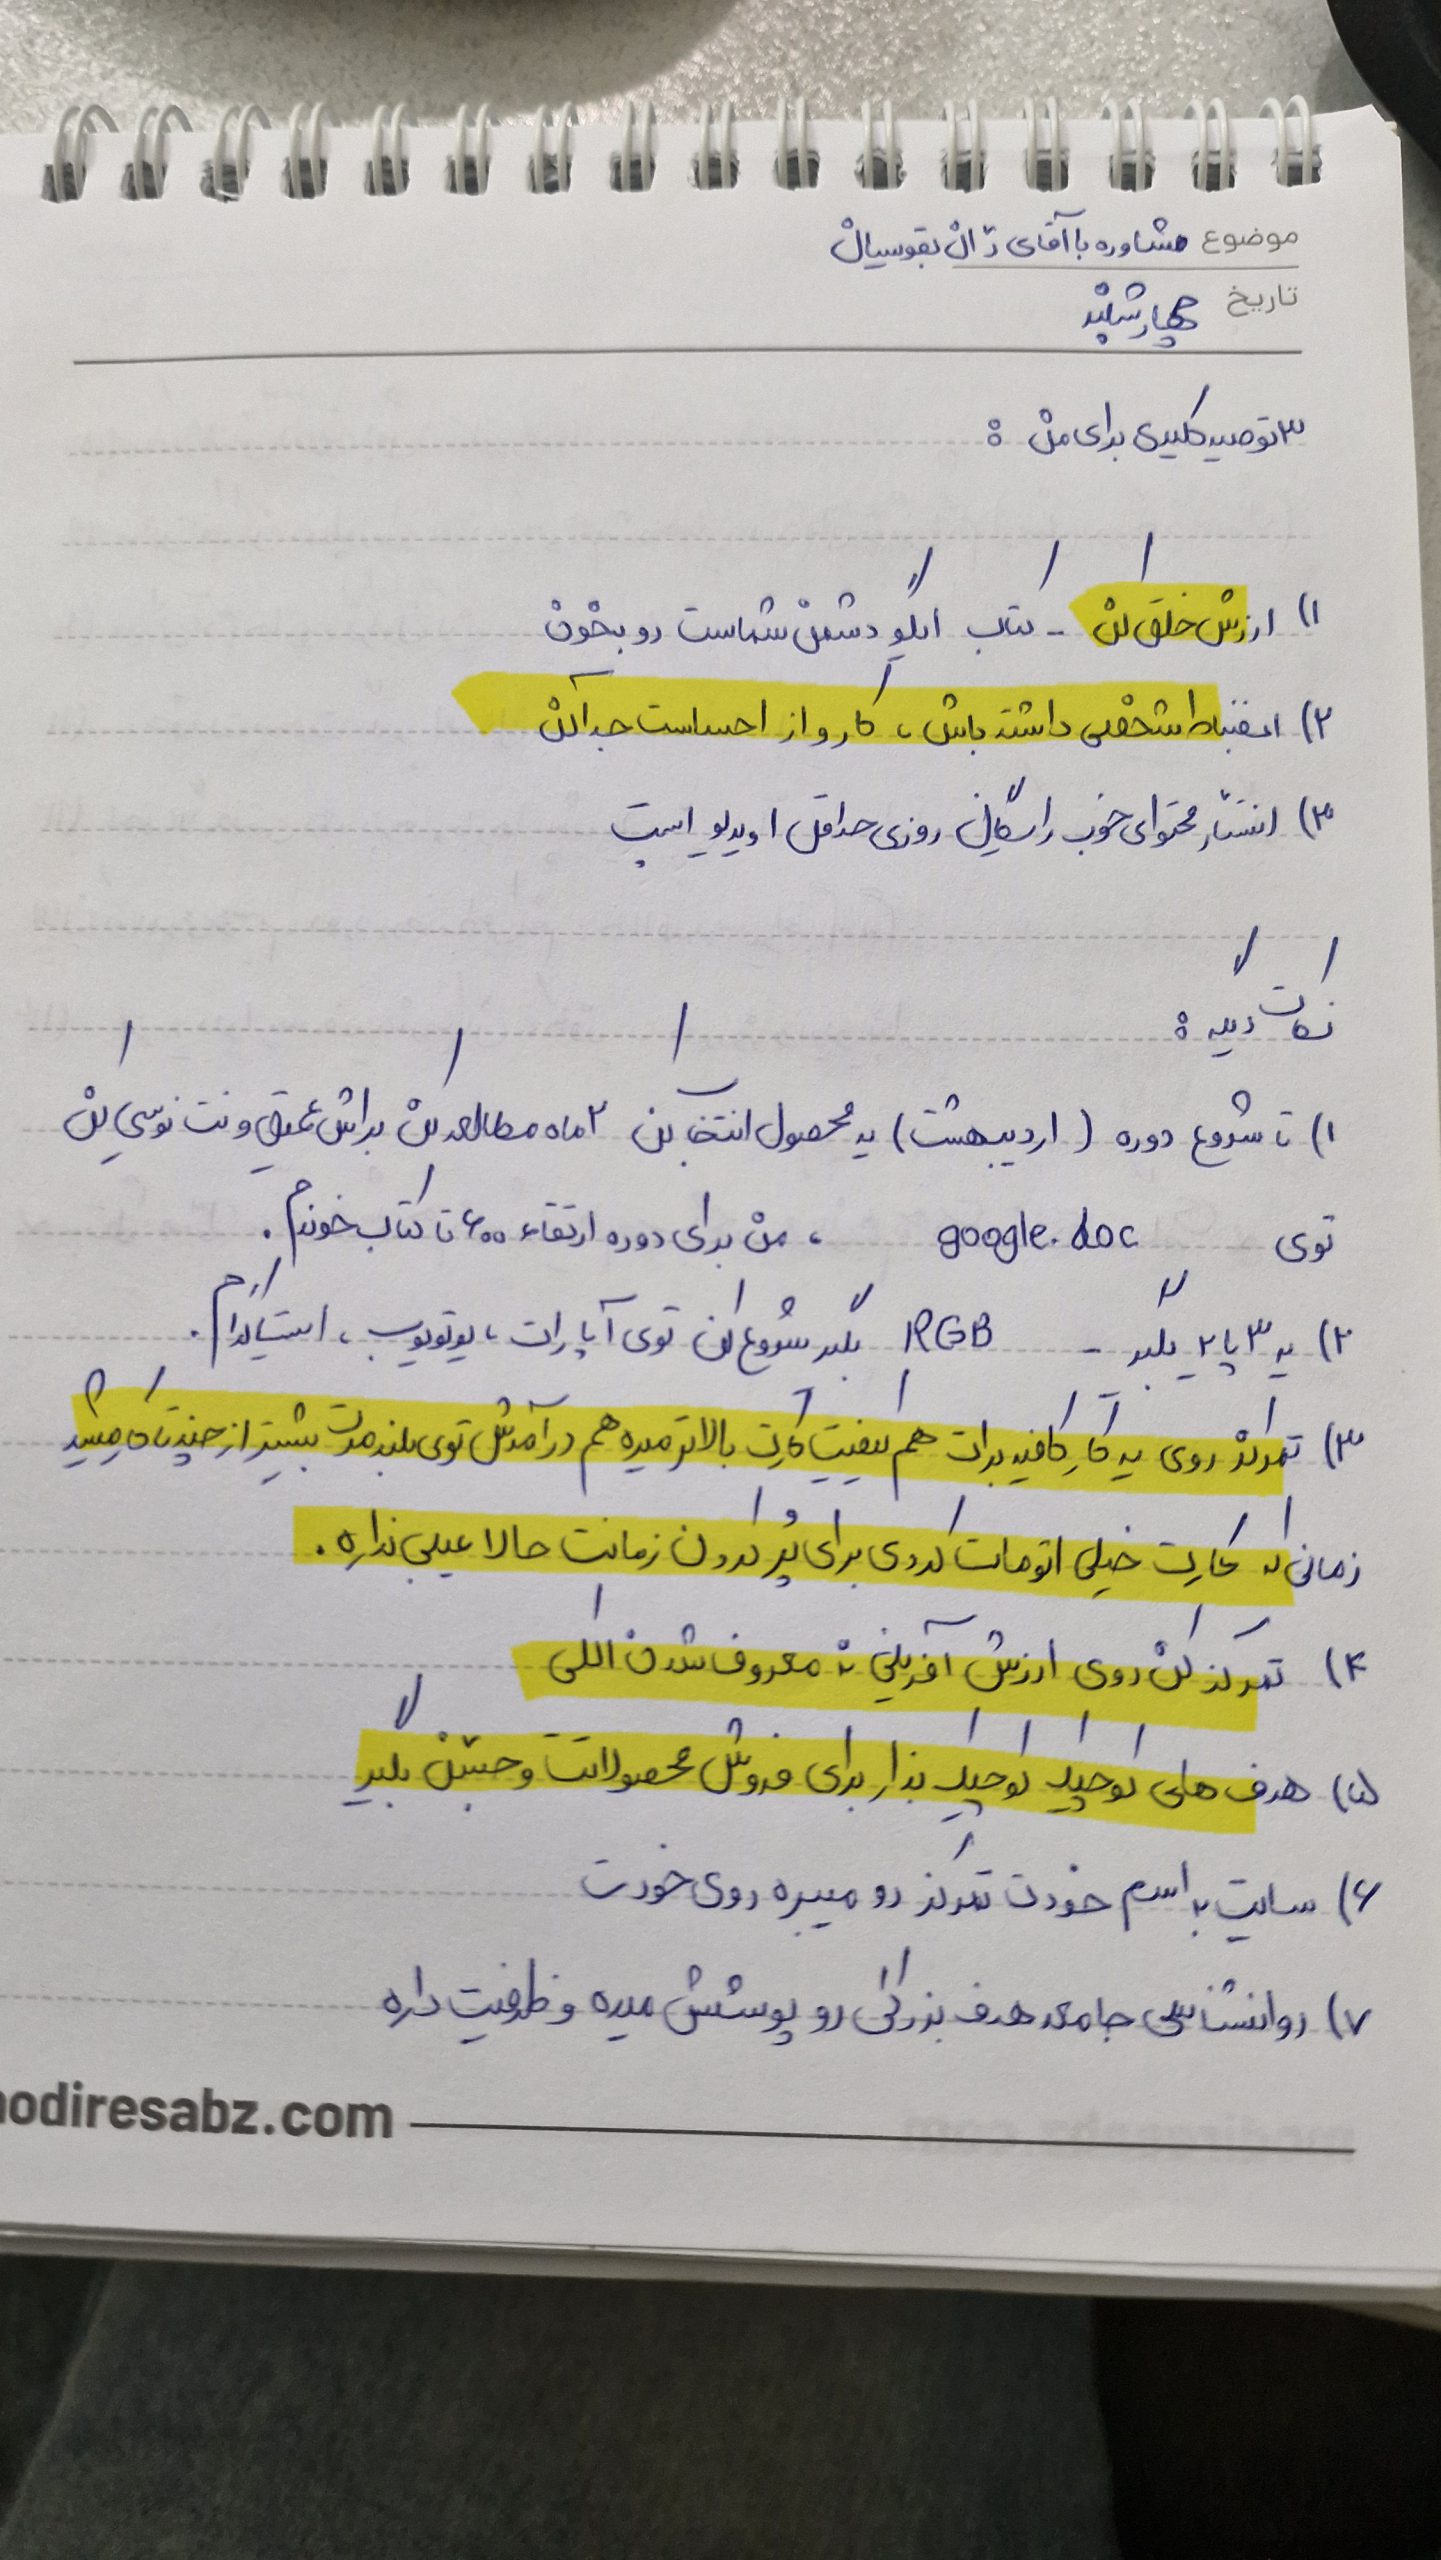 موضوع مشاوره با آقای ژان بقوسیان
تاریخ چهارشنبه
۳ توصیه کلیدی برای من :
۱) ارزش خلق کن - کتاب ایگو دشمن شماست رو بخون
۲) انضباط شخصی داشته باش ، کار و از احساست جدا کن
۳) انتشار محتوای خوب رایگان روزی حداقل ۱ ویدیو است
نکات دیگه :
۱) تا شروع دوره (اردیبهشت) یه محصول انتخاب کن ۲ ماه مطالعه کن براش عمیق و نت نویسی کن
توی google.doc ، من برای دوره ارتقاء ۶۰۰ تا کتاب خوندم .
۲) یه ۳ پایه بگیر - RGB بگیر شروع کن توی آپارات ، یوتیوب ، اینستاگرام .
۳) تمرکز روی یه کار کافیه برات هم کیفیت کارت بالاتر میره هم درآمدش توی بلند مدت بیشتر از چند تا کار میشه
زمانی که کارت خیلی اتومات کردی برای پُر کردن زمانت حالا عیبی نداره .
۴) تمرکز کن روی ارزش آفرینی نه معروف شدن الکی
۵) هدف های کوچیک کوچیک بذار برای فروش محصولاتت و جشن بگیر
۶) سایت به اسم خودت تمرکز رو میبره روی خودت
۷) روانشناسی جامعه هدف بزرگی رو پوشش میده و ظرفیت داره
odiresabz.com